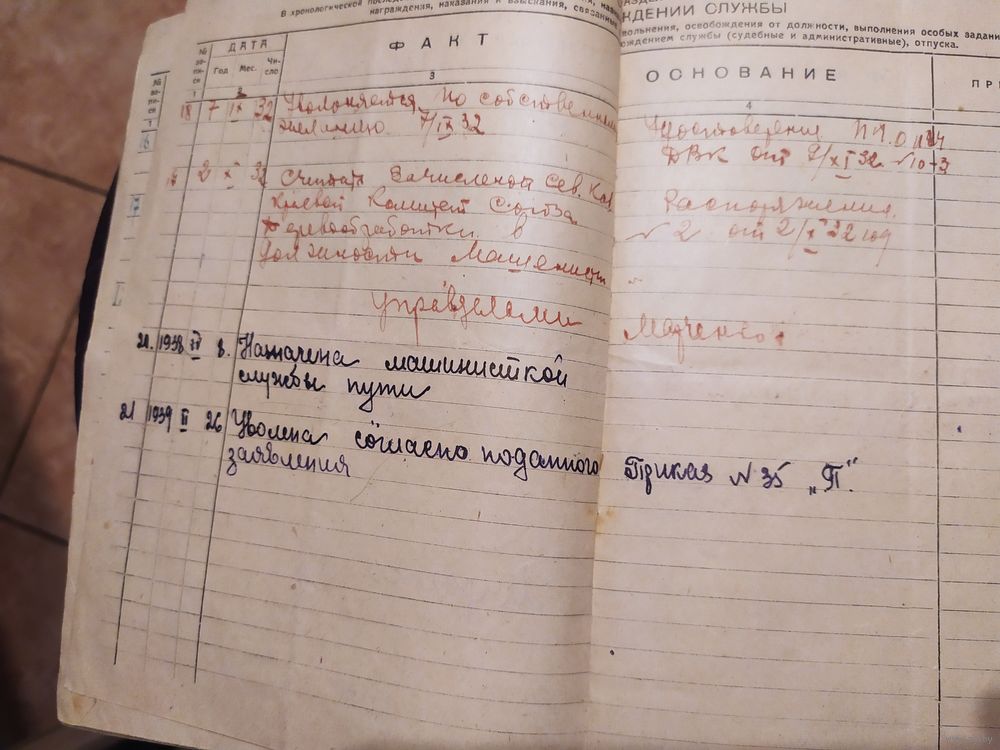 В хронологической
РАЗДЕ
ЖДЕНИИ СЛУЖБЫ
награждения, наказания и взыскания, связанные
вольнения, освобождения от должности, выполнения особых задани
ождением службы (судебные и административные), отпуска.
№ запи-си
ДАТА
ФАКТ
ОСНОВАНИЕ
ПРИ
Год Мес. Чи-сло
1 2 3 4
18 7 IX 32 Уволняется по собственному
желанию 7/IX 32
Удостоверения
ДВК от
2 X 32 Считать зачисленой Сев. Кав.
Краевой Комитет Союза
Деревообработки в
должности Машинист
Распоряжения
№ 2 от 2/X 32 год
Управделами
Марченко
20. 1938 IV 8. Назначена машинисткой
службы пути
21 1939 II 26 Уволена согласно поданного
заявления
Приказ № 35 „П“.